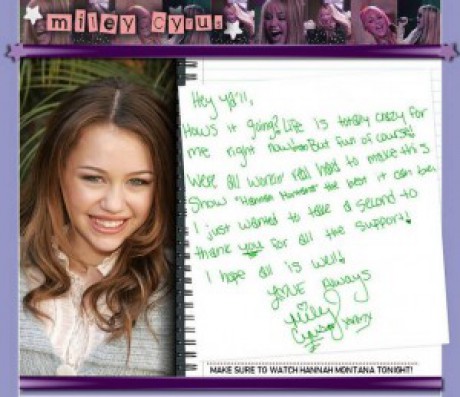 miley Cyrus
Hey Ya'll,
Hows it going? Life is totally crazy for
me right now But fun of course!
We're all workin real hard to make this
Show "Hannah Montana" the best it can be!
I just wanted to take a second to
thank you for all the support!
I hope all is well!
LOVE Always
Miley
Cyrus
MAKE SURE TO WATCH HANNAH MONTANA TONIGHT!